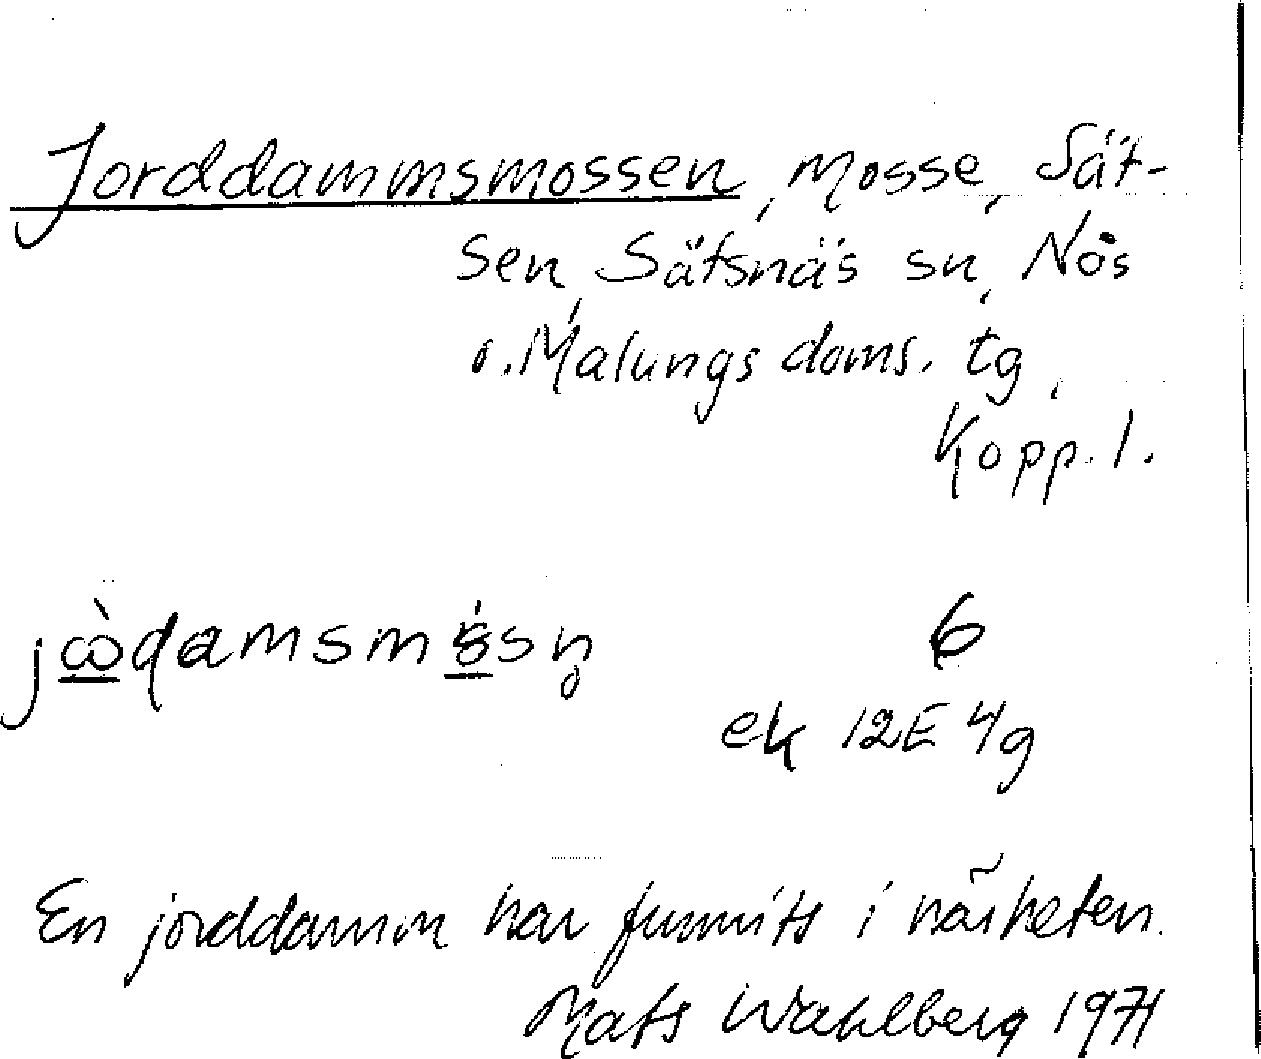 Jorddammsmossen, Mosse, Sät-
sen, Sätsnäs sn, Nås
o. Malungs doms. tg,
Kopp. l.
6
ek 12E 4g
En jorddamm har funnits i närheten.
Mats Wahlberg 1971